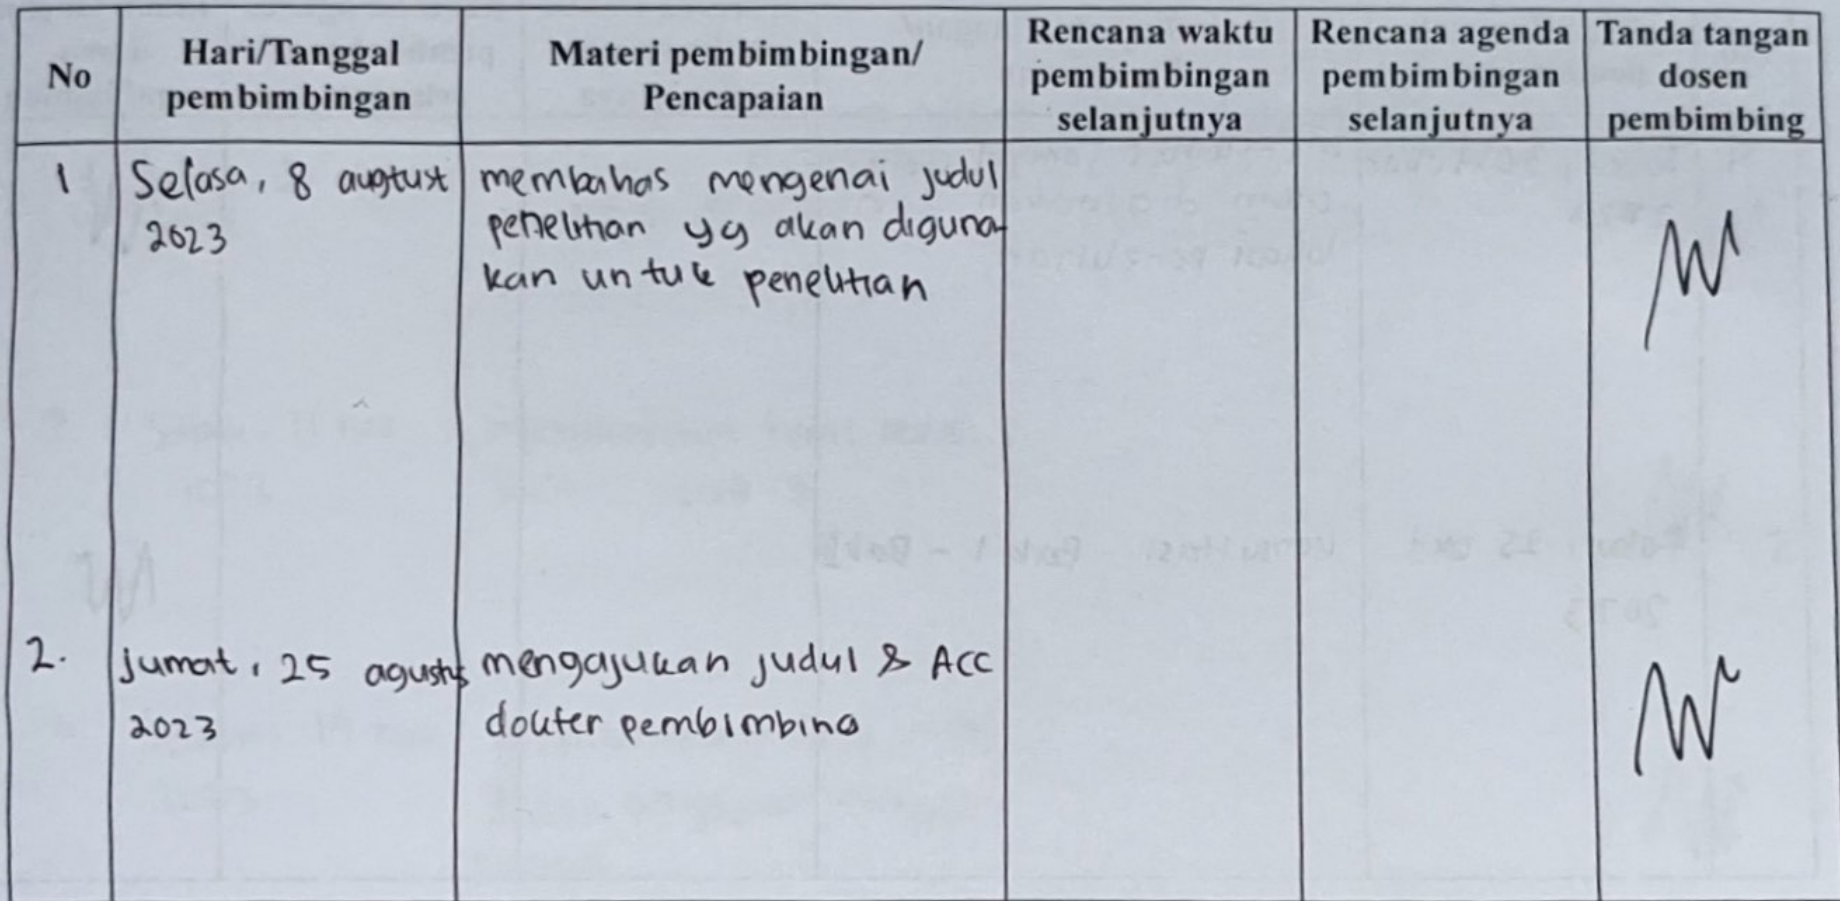 No
Hari/Tanggal
pembimbingan
Materi pembimbingan/
Pencapaian
Rencana waktu
pembimbingan
selanjutnya
Rencana agenda
pembimbingan
selanjutnya
Tanda tangan
dosen
pembimbing
1
Selasa, 8 augtust
2023
membahas mengenai judul
penelitian yg akan diguna
kan untuk penelitian
2.
jumat, 25 agustus
2023
mengajukan judul & ACC
dokter pembimbing